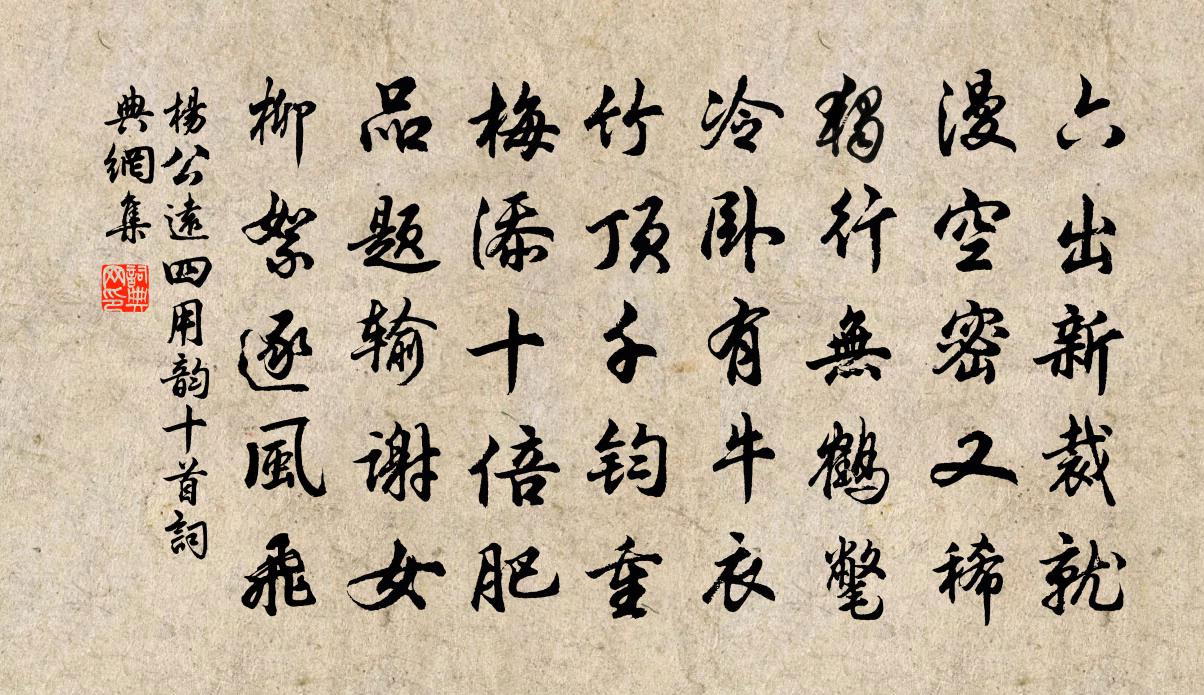 六出新裁就
漫空密又稀
獨行無鶴氅
冷卧有牛衣
竹頂千鈞重
梅添十倍肥
品題输謝女
柳絮逐風飛
楊公遠四用韵十首詞
典網集
詞典网印